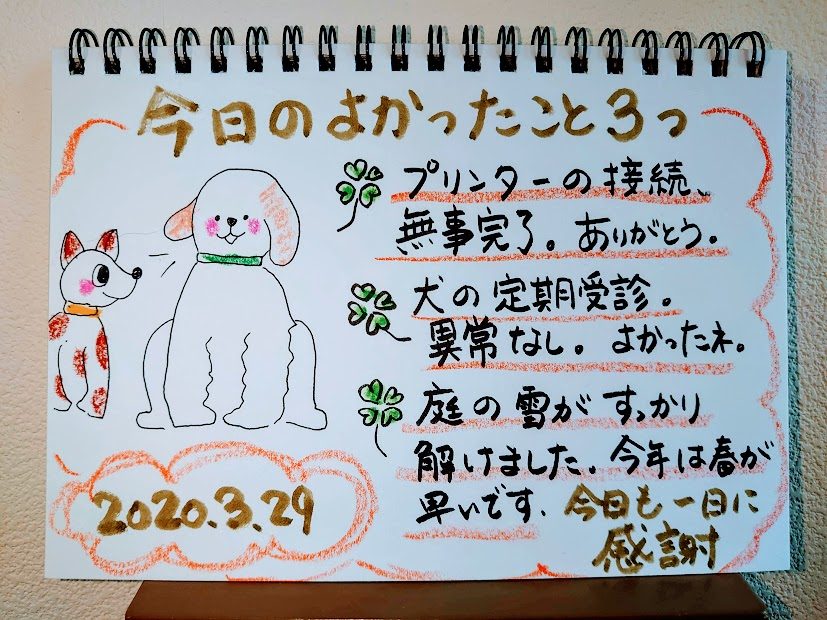 今日のよかったこと3つ
プリンターの接続、
無事完了。ありがとう。
犬の定期受診。
異常なし。よかったネ。
庭の雪がすっかり
解けました。今年は春が
早いです.今日も一日に
感謝
2020.3.29